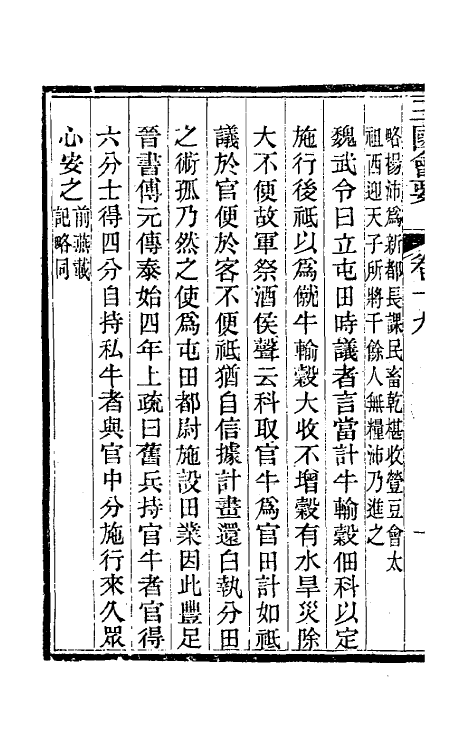 三國會要
卷十九
一
略楊沛爲新都長課民畜乾椹收䝁豆會太
祖西迎天子所將千餘人無糧沛乃進之
魏武令曰立屯田時議者言當計牛輸穀佃科以定
施行後祗以爲僦牛輸穀大收不增穀有水旱災除
大不便故軍祭酒侯聲云科取官牛爲官田計如祗
議於官便於客不便祗猶自信據計畫還白執分田
之術孤乃然之使爲屯田都尉施設田業因此豐足
晉書傅元傳泰始四年上疏曰舊兵持官牛者官得
六分士得四分自持私牛者與官中分施行來久眾
心安之前燕載
記略同